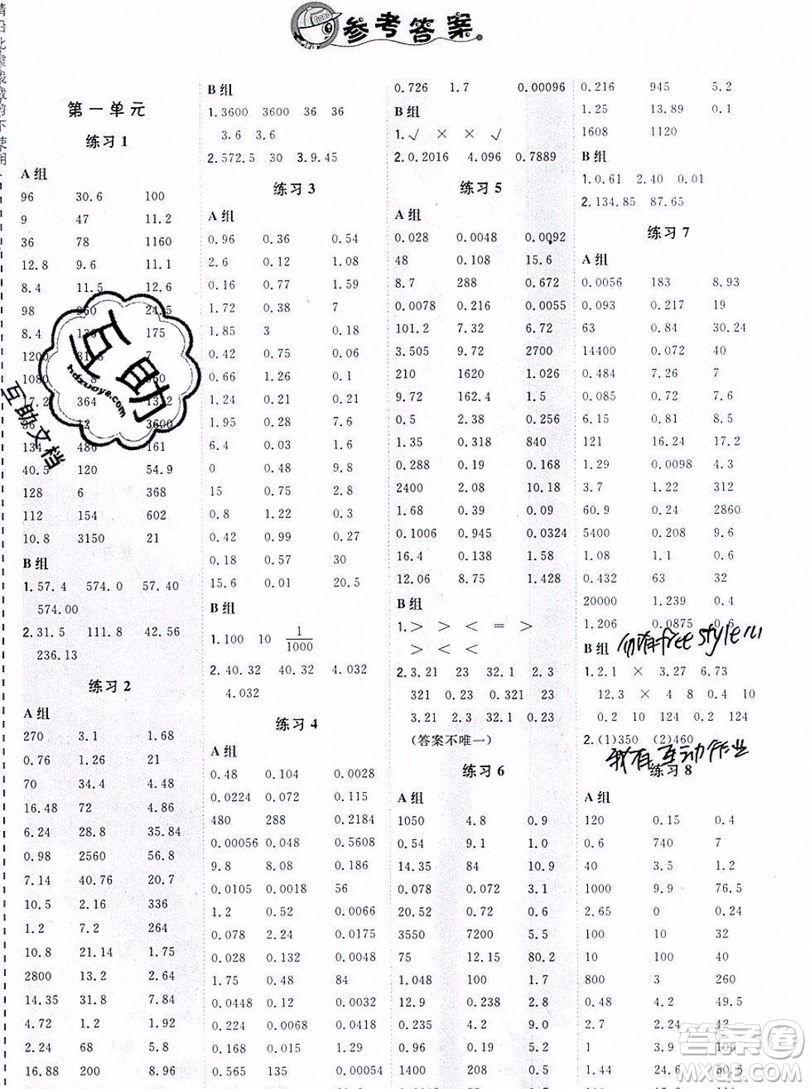 参考答案
第一单元
练习 1
A 组
96 30.6 100
9 47 11.2
36 78 1160
12.8 9.6 11.1
8.4 11.5 12.6
98
8.4 175
1200 7
1080
17.2 364
12 3600
134 486 161
40.5 120 54.9
128 6 368
112 154 602
10.8 3150 21
B 组
1.57.4 574.0 57.40
574.00
2.31.5 111.8 42.56
236.13
练习 2
A 组
270 3.1 1.68
0.76 230 1.2
70 34.4 0.18
16.48 72 2.86
6.24 28.8 35.84
0.98 2560 15
7.14 40.76 20.76
10.5 2.16 336
1.2 7.2 90
10.8 21.14 1.75
2800 13.2 4.16
14.35 31.8 7.84
A.72 1.2 1.92
2.28 0.36 30
16.88 200 0.8
B 组
1.3600 3600 36 36
3.6 3.6
2.572.5 30 3.9.45
练习 3
A 组
0.96 0.36 0.54
2.6 0.12 1.08
0.16 0.77 1.32
1.72 0.38 7
1.85 3 0.3
0.42 0.75 0.06
0.66 1.26 0.12
1.24 0.21 0.21
1.95 0.28 0.08
6.4 0.03 1.6
0 0.48 9.8
15 0.75 0.24
0.8 1.22 0.3
0.42 0.99 0.06
0.18 0.57 30
15.6 0.01 20.5
B 组
1.100 10 1/1000
2.40.32 40.32 4.032
4.032
练习 4
A 组
0.48 0.104 0.0028
0.0224 0.072 0.115
480 288 0.2184
0.00056 0.048 0.5608
9.8 8.08 0.064
0.0105 0.0018 56
1.2 0.52 0.0066
0.078 2.24 0.0015
0.108 0.15 0.078
1.75 0.48 84
0.0448 0.12 0.0072
0.224 0.0018 0.448
0.565 135 0.00054
0.726 1.7 0.00096
B 组
1.√ × × √
2.0.2016 4.096 0.7889
练习 5
A 组
0.028 0.0048 0.0092
48 0.108 15.6
8.7 288 0.672
0.0078 0.216 0.0055
101.2 7.32 6.72
3.505 9.72 2700
210 1620 1.026
9.72 162.4 1.5
0.5 2.38 0.256
1.35 0.318 840
0.288 0.19 0.125
2400 2.08 10.18
1.68 0.39 0.54
0.1006 0.945 0.0324
16.4 0.138 1.38
12.06 8.75 1.728
B 组
1.＞ ＞ ＜ ＝ ＞
＞ ＜ ＜ ＞
2.3.21 23 32.1 2.3
321 0.23 3.21 23
3.21 2.3 0.321 23
(答案不唯一)
练习 6
A 组
1050 4.8 0.9
0.091 6.58 6.8
14.35 84 10.4
0.078 0.048 0.29
20.52 10.4 0.72
3550 7200 5.5
75 6 80.01
1.048 100 160
12.9 0.243 2.88
2.58 2.8 0.126
1.08 6.4 10.45
0.216 945 5.2
1.25 13.89 0.1
1608 1120
B 组
1.0.61 2.40 0.01
2.134.85 87.65
练习 7
A 组
0.0056 183 8.93
0.093 0.217 2.5
63 0.84 30.24
14400 0.072 40
0.48 0.69 7.26
0.65 0.81 8.5
121 16.24 17.2
1.29 0.0098 4.3
60.9 0.24 2860
5400 0.208 9.6
0.432 63 32
20000 1.239 0.4
1.206 0.0875 6
B 组
勿有free style儿
1.2.1 × 3.27 6.73
12.3 × 4 8 0.4 10
0.2 10 2 124 0.2 124
2.(1)350 (2)460
我有互动作业
练习 8
A 组
120 0.15 0.4
0.6 740 7
40 3.5 12
1000 9.9 76.5
2.82 65 40
100 10 100
10 38 10
800 3 260
4.2 4 49.5
2 2.24 12
3 8.9 100
1.44 24.6 80.5
互助
hdzuoye.com
互助文档
答案圈